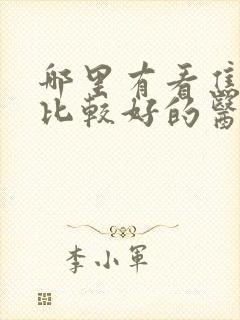 哪里有看焦
比較好的醫
李小軍